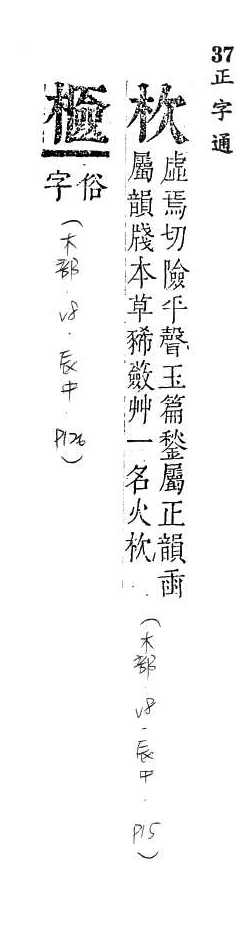 37正字通
杴
虛焉切險平聲玉篇鍫屬正韻臿
屬韻牋本草豨薟艸一名火杴
(木部.v8.辰中.P15)
俗
字
(木部.v8.辰中.P126)